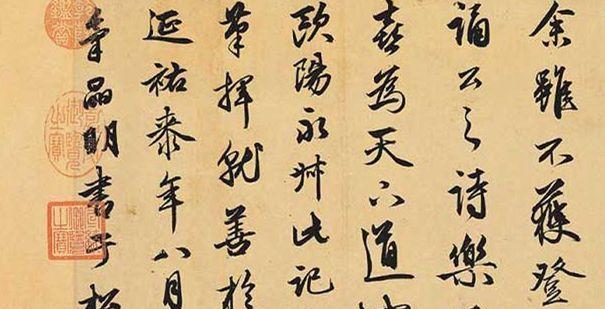 余雖不獲登
誦公之詩樂
喜為天下道
歐陽永叔此記
筆揮就善於
延祐泰年八月
晶明書于松